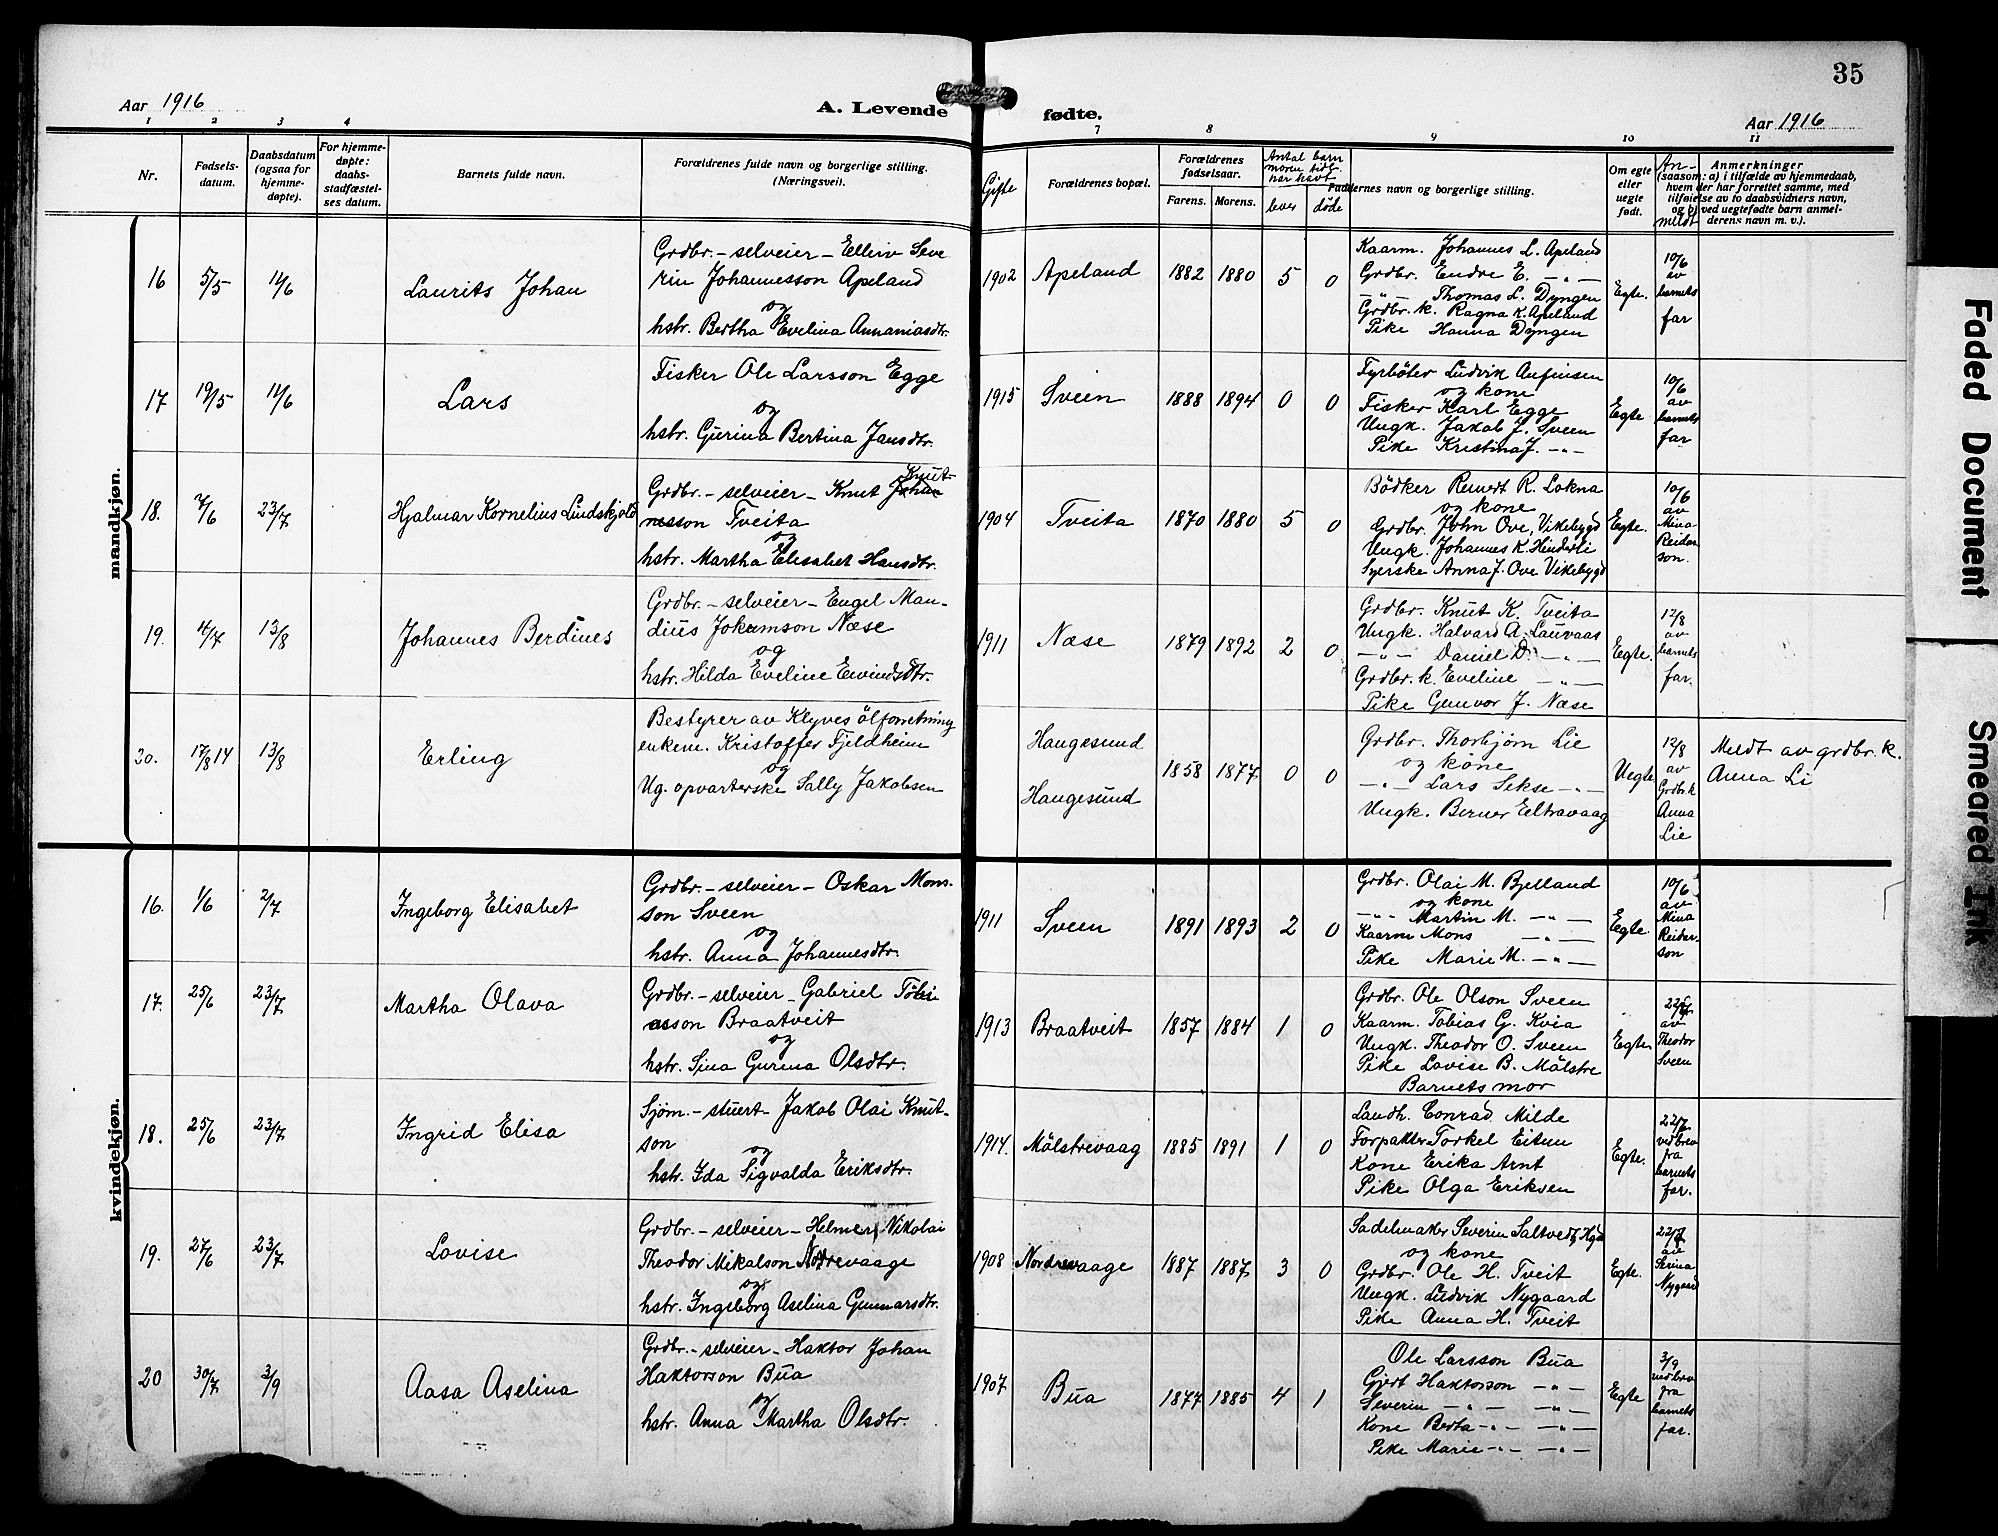 35
Aar 1916
A. Levende
fødte.
Aar 1916
1 2 3 4
7 8 9 10 11
Nr.
Fødsels-
datum.
Daabsdatum
(ogsaa for
hjemme-
døpte).
For hjemme-
døpte:
daabs-
stadfæstel-
ses datum.
Barnets fulde navn.
Forældrenes fulde navn og borgerlige stilling.
(Næringsvei).
Gifte
Forældrenes bopæl.
Forældrenes
fødselsaar.
Farens. Morens.
Antal barn
moren tidl.
har havt
lever døde
Faddernes navn og borgerlige stilling.
Om egte
eller
uegte
født.
An-
meldt
Anmerkninger
(saasom: a) i tilfælde av hjemmedaab,
hvem der har forrettet samme, med
tilføielse av to daabsvidners navn,
og b) ved uegtefødte barn anmel-
derens navn m. v.).
mandkjøn.
16 5/5 11/6 Laurits Johan
Grdbr. - selveier - Elleiv Seve
rin Johannesson Apeland
og
hstr. Bertha Evelina Annaniasdtr.
1902 Apeland 1882 1880 5 0
Kaarm. Johannes L. Apeland
Grdbr. Endre E. - " -
- Grdbr. - Thomas L. Dyngen
Grdbr. k. Ragna K. Apeland
Pike Hanna Dyngen
Egte.
10/6
av
barnets
far
17 19/5 11/6 Lars
Fisker Ole Larsson Egge
og
hstr. Gurina Bertina Jansdtr.
1915 Sveen 1888 1894 0 0
Fyrbøter Ludvik Anfinsen
og kone
Fisker Karl Egge
Ungk. Jakob J. Sveen
Pike Kristina J. - " -
Egte
10/6
av
barnets
far
18. 7/6 23/7 Hjalmar Kornelius Lindskjold
Knut-
Grdbr. - selveier - Knut Johan
nesson Tveita
og
hstr. Martha Elisabet Hansdtr.
1904 Tveita 1870 1880 5 0
Bödker Reinert R. Lokna
og kone
Grdbr. John Ove, Vikebygd
Ungk. Johannes K. Hinderli
Syerske Anna J. Ove Vikebygd
Egte.
10/6
av
Mina
Reidar
son.
19. 4/7 13/8 Johannes Berdines
Grdbr. - selveier - Engel Man-
dius Jokumson Næse
og
hstr. Hilda Eveline Eivindsdtr.
1911 Næse 1879 1892 2 0
Grdbr. Knut K. Tveita
Ungk. Halvard A. Lauvaas
- " - Daniel D. - " -
Grdbr. k. Eveline - " -
Pike Gunvor J. Næse
Egte.
12/8
av
barnets
far.
20. 17/8 14 13/8 Erling
Bestyrer av Klyves ölforretning
enkem. Kristoffer Fjeldheim
og
Ug. opvarterske Sally Jakobsen
Haugesund
Haugesund
1858 1877 0 0
Grdbr. Thorbjørn Lie
og kone
- " - Lars Sekse - " -
Ungk. Berner Eltravaag
Uegte
12/8
av
Grdbr. k
Anna
Lie
Meldt av grdbr. k.
Anna Li
kvindekjøn.
16. 1/6 2/7 Ingeborg Elisabet
Grdbr. - selveier - Oskar Mons-
son Sveen
og
hstr. Anna Johannesdtr.
1911 Sveen 1891 1893 2 0
Grdbr. Olai M. Bjelland
og kone
- " - Martin M. - " -
Kaarm Mons - " -
Pike Marie M. - " -
Egte.
10/6
av
Mina
Reidar-
son
17. 25/6 23/7 Martha Olava
Grdbr. - selveier - Gabriel Tobi
asson Braatveit
og
hstr. Sina Gurina Olsdtr.
1913 Braatveit 1857 1884 1 0
Grdbr. Ole Olson Sveen
Kaarm. Tobias G. Kvia
Ungk. Theodor O. Sveen
Pike Lovise B. Mälstre
Barnets mor
Egte.
22/7
av
Theodor
Sveen
18. 25/6 23/7 Ingrid Elisa
Sjöm. - stuert - Jakob Olai Knut-
son
og
hstr. Ida Sigvalda Eriksdtr.
1914. Mälstrevaag 1885 1891 1 0
Landh. Conrad Milde
Forpakter Torkel Eitun
Kone Erika Arnt
Pike Olga Eriksen
Egte.
22/7
ved brev
fra
barnets
far.
19. 27/6 23/7 Lovise
Grdbr. - selveier - Helmer Nikolai
Theodor Mikalson Nordrevaage
og
hstr. Ingeborg Aselina Gunnarsdtr.
1908 Nordrevaage 1887 1887 3 0
Sadelmaker Severin Saltvedt, Hgd
og kone
Grdbr. Ole H. Tveit
Ungk. Ludvik Nygaard
Pike Anna H. Tveit
Egte.
22/7
av
Serina
Nygaard
20 30/7 3/9 Aasa Aselina
Grdbr. - selveier - Haktor Johan
Haktorson Bua
og
hstr. Anna Martha Olsdtr.
1907 Bua 1877 1885 4 1
Ole Larsson Bua
Gjert Haktorsson - " -
Severin - " - - " -
Kone Berta - " - - " -
Pike Marie - " - - " -
Egte
3/9
ved brev
fra
barnets
far.
Faded Document
Smeared Ink